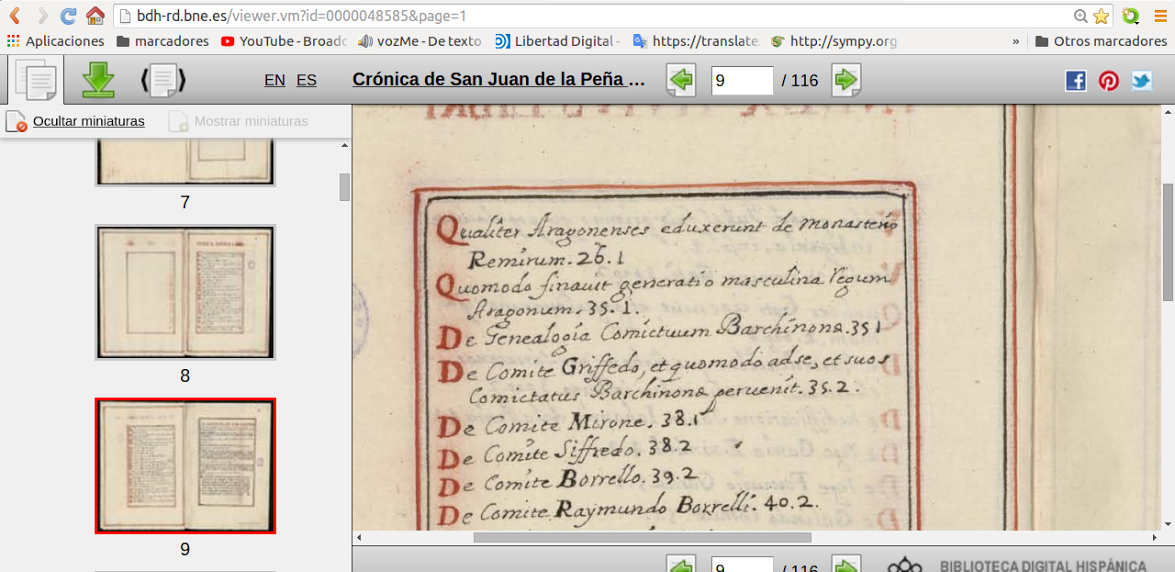 bdh-rd.bne.es/viewer.vm?id=0000048585&page=1
Aplicaciones marcadores YouTube - Broadc vozMe - De texto Libertad Digital - https://translate. http://sympy.org » Otros marcadores
EN ES Crónica de San Juan de la Peña ... 9 / 116
Ocultar miniaturas Mostrar miniaturas
7
8
9
Qualiter Aragonenses eduxerunt de monasterio
Remirum. 26. 1
Quomodo finauit generatio masculina regum
Aragonum. 35. 1.
De Genealogia Comictuum Barchinonæ. 35 1
De Comite Griffedo, et quomodo ad se, et suos
Comictatus Barchinonæ peruenit. 35. 2.
De Comite Mirone. 38. 1
De Comite Siffredo. 38. 2
De Comite Borrello. 39. 2
De Comite Raymundo Borrelli. 40. 2.
9 / 116 BIBLIOTECA DIGITAL HISPÁNICA